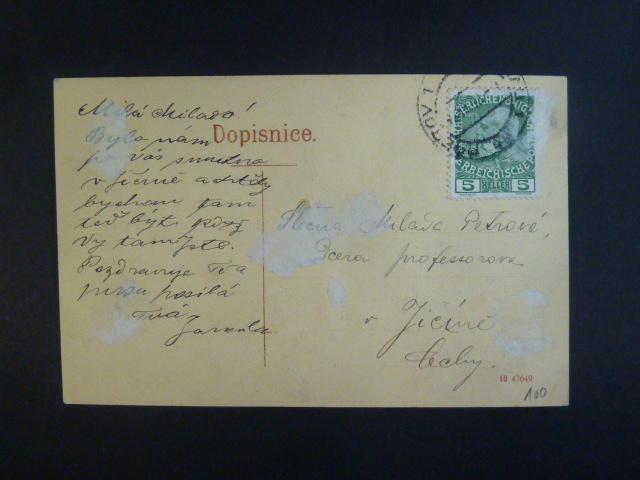 Milá Milado!
Bylo nám
po Vás smutno
v Jičíně a
bychom tam
teď být když
Vy tam jste.
Pozdravuje Tě a
pusu posílá
Tvá
Jarmila.
Dopisnice.
PŘEROV 1
KAISERLICHE KÖNIGL
ÖSTERREICHISCHE POST
5 HELLER 5
Slečna Milada Petrová,
Dcera professorova
v Jičíně
Čechy.
10 47049
100